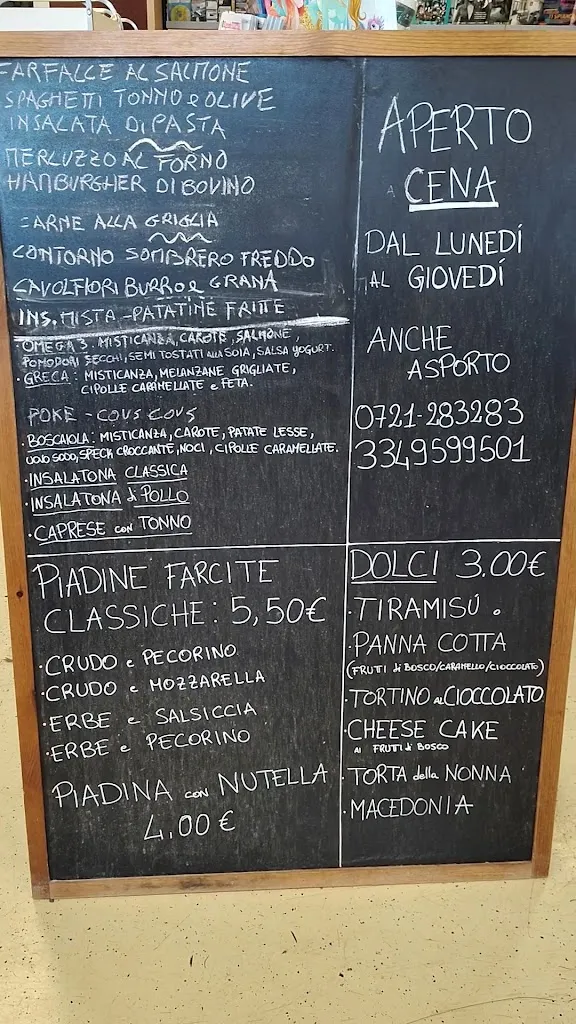 FARFALLE AL SALMONE
SPAGHETTI TONNO e OLIVE
INSALATA DI PASTA
MERLUZZO AL FORNO
HAMBURGHER DI BOVINO
CARNE ALLA GRIGLIA
CONTORNO SOMBRERO FREDDO
CAVOLFIORI BURRO e GRANA
INS. MISTA - PATATINE FRITTE
· OMEGA 3: MISTICANZA, CAROTE, SALMONE,
POMODORI SECCHI, SEMI TOSTATI ALLA SOIA, SALSA YOGURT.
· GRECA: MISTICANZA, MELANZANE GRIGLIATE,
CIPOLLE CARAMELLATE e FETA.
POKE - COUS COUS
· BOSCAIOLA: MISTICANZA, CAROTE, PATATE LESSE,
UOVO SODO, SPECK CROCCANTE, NOCI, CIPOLLE CARAMELLATE.
· INSALATONA CLASSICA
· INSALATONA di POLLO
· CAPRESE con TONNO
APERTO
A CENA
DAL LUNEDÍ
AL GIOVEDÍ
ANCHE
ASPORTO
0721-283283
3349599501
PIADINE FARCITE
CLASSICHE: 5,50€
· CRUDO e PECORINO
· CRUDO e MOZZARELLA
· ERBE e SALSICCIA
· ERBE e PECORINO
PIADINA con NUTELLA
4,00 €
DOLCI 3.00€
· TIRAMISÚ
· PANNA COTTA
(FRUTTI di BOSCO/CARAMELLO/CIOCCOLATO)
· TORTINO AL CIOCCOLATO
· CHEESE CAKE
AI FRUTTI di BOSCO
· TORTA della NONNA
· MACEDONIA